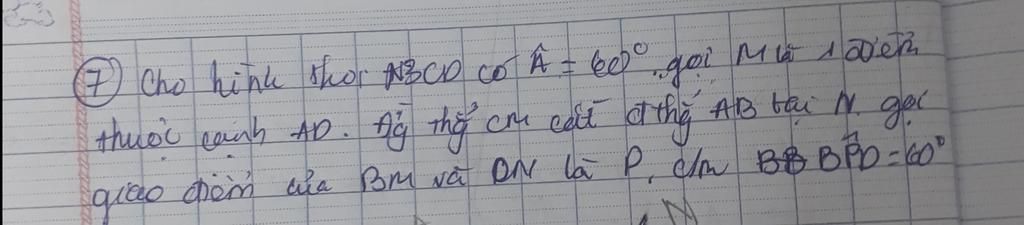 ⑦ Cho hình thoi ABCD có Â = 60°, gọi M là 1 điểm
thuộc cạnh AD. đg thg CM cắt đ thg AB tại N. gọi
giao điểm của BM và DN là P. c/m BPD = 60°